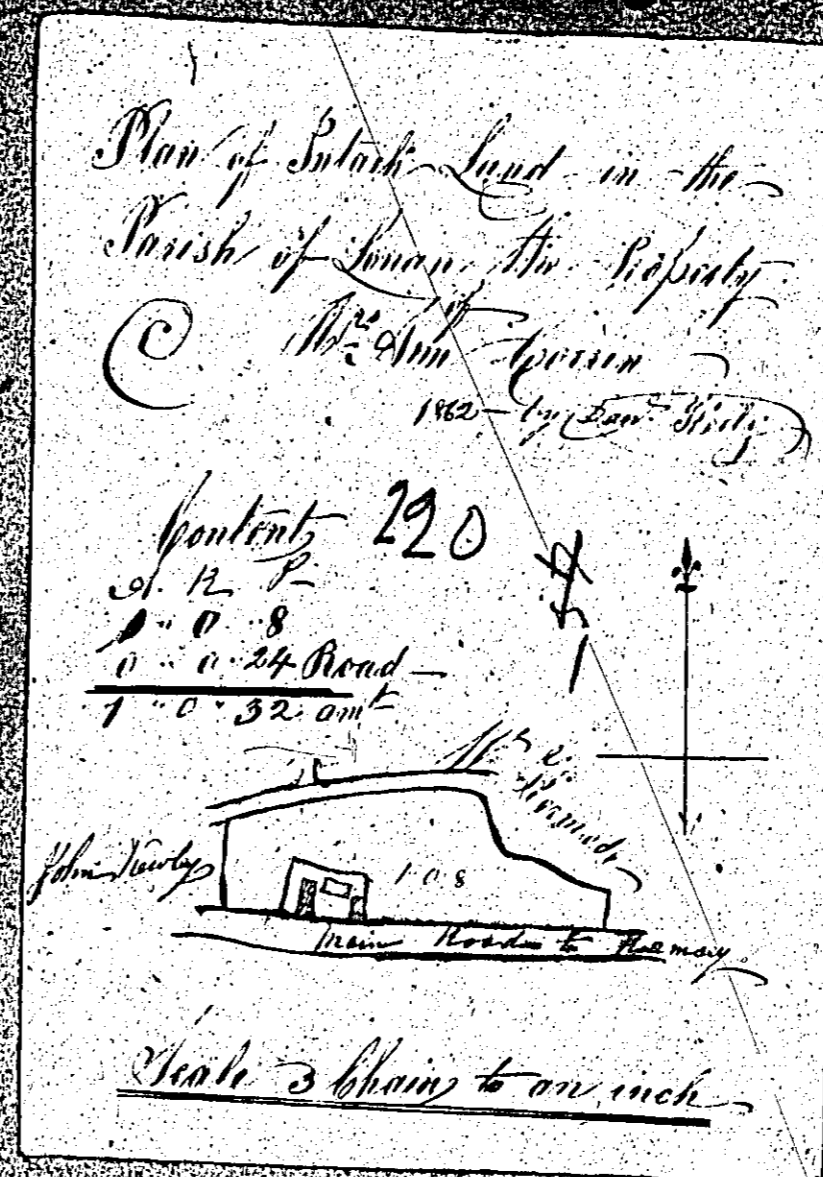 Plan of Intack Land in the
Parish of Lonan the Property
of
Mrs Ann Corrin
1862 - by Danl
Content 220
A. R. P.
1 " 0 " 8
0 " 0 " 24 Road
1 " 0 " 32 amt
1
Mr
John
1 0 8
Main Road to Ramsey
Scale 3 Chains to an inch